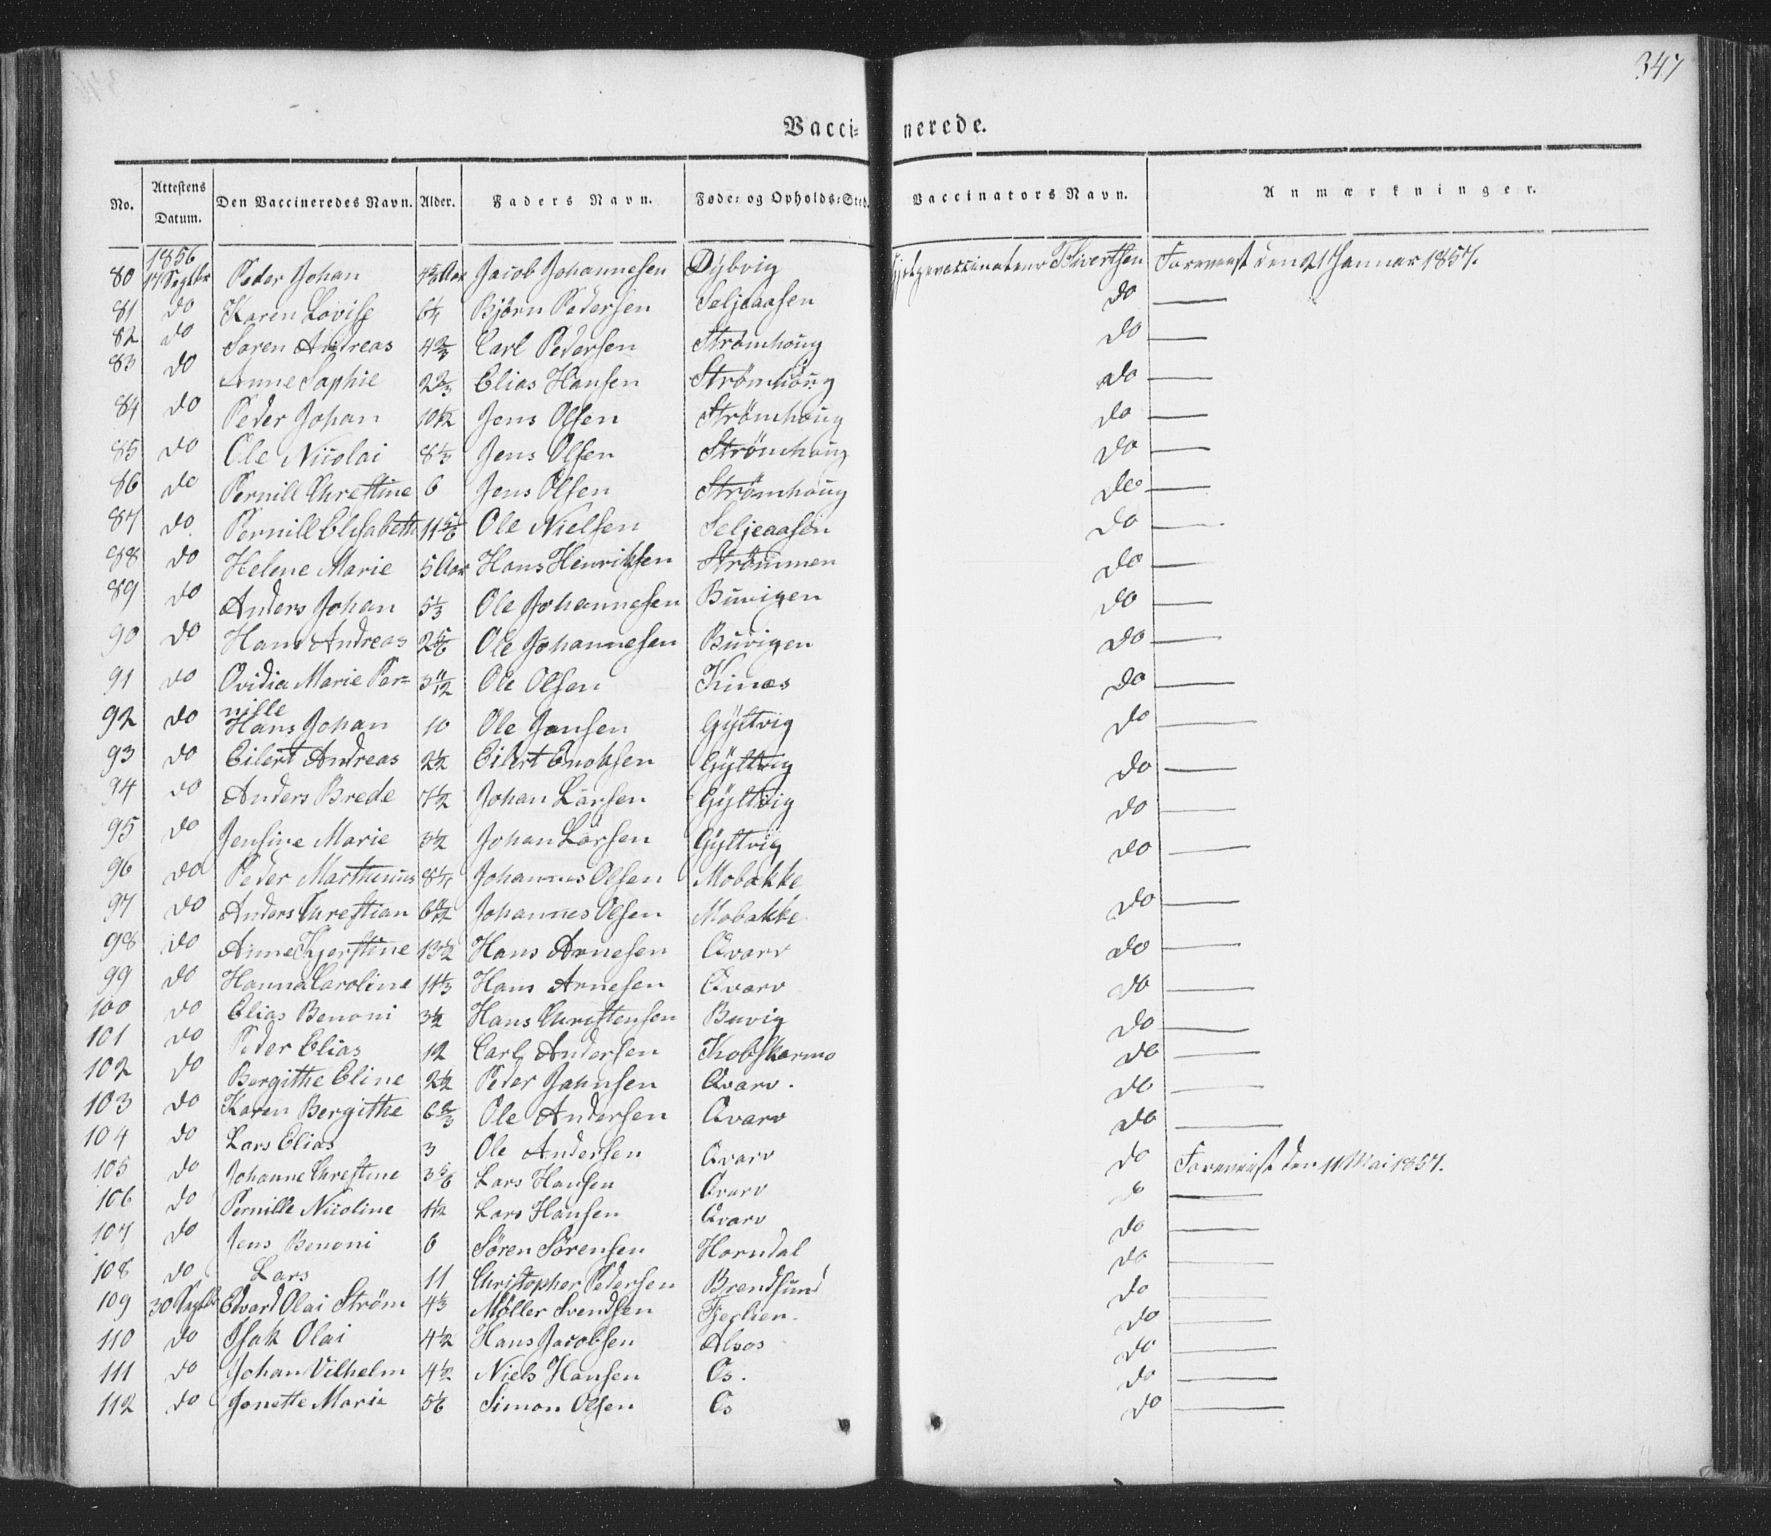 347
Vaccinerede.
No. Attestens Datum. Den Vaccineredes Navn. Alder. Faders Navn. Føde= og Opholds=Sted. Vaccinators Navn. Anmærkninger.
1856
80 17 Septbr Peder Johan Aar Jacob Johannesen Dybvig Sivertsen Forevist den 21 Januar 1857.
81 do Karen Lovise 6¼ Bjørn Pedersen Seljeaasen do —
82 do Søren Andreas 4⅔ Carl Pedersen Strømhoug do —
83 do Anne Sophie 2⅔ Elias Hansen Strømhoug do —
84 do Peder Johan 10½ Jens Olsen Strømhoug do —
85 do Ole Nicolai 8⅓ Jens Olsen Strømhoug do —
86 do Pernill Chrestine 6 Jens Olsen Strømhoug do —
87 do Pernill Elisabeth 11⅚ Ole Nielsen Seljeaasen do —
88 do Helene Marie 5 Aar Hans Henriksen Strømmen do —
89 do Anders Johan 5⅓ Ole Johannesen Buvigen do —
90 do Hans Andreas 2⅚ Ole Johannesen Buvigen do —
91 do Ovidia Marie Per=nille 3 11/12 Ole Olsen Kinæs do —
92 do Hans Johan 10 Ole Jensen Gyltvig do —
93 do Eilert Andreas 2½ Eilert Enoksen Gyltvig do —
94 do Anders Brede 7½ Johan Larsen Gyltvig do —
95 do Jensine Marie 3½ Johan Larsen Gyltvig do —
96 do Peder Marthinus 8¼ Johannes Olsen Mobakke
97 do Anders Chrestian 6 11/12 Johannes Olsen Mobakke do —
98 do Anne Kjerstine 13½ Hans Arnesen Qvarv do —
99 do Hanna Caroline 11⅓ Hans Arnesen Qvarv do —
100 do Elias Benoni 3½ Hans Christensen Buvig do —
101 do Peder Elias 12 Carl Andersen Kobskarmo do —
102 do Bergithe Eline 2½ Peder Jahnsen Qvarv. do —
103 do Karen Bergithe 6⅔ Ole Andersen Qvarv do —
104 do Lars Elias 3 Ole Andersen Qvarv do Forevist den 11 Mai 1857.
105 do Johanne Chrestine 3⅚ Lars Hansen Qvarv do —
106 do Pernille Nicoline 1½ Lars Hansen Qvarv do —
107 do Jens Benoni 6 Søren Sørensen Horndal do —
108 do Lars 11 Christopher Pedersen Brendsund do —
109 30 Septbr Edvard Olai Strøm 4⅓ Møller Svendsen do —
110 do Isak Olai 4½ Hans Jacobsen Alsos do —
111 do Johan Vilhelm 4½ Niels Hansen Os. do —
112 do Jonette Marie 5⅙ Simon Olsen Os do —